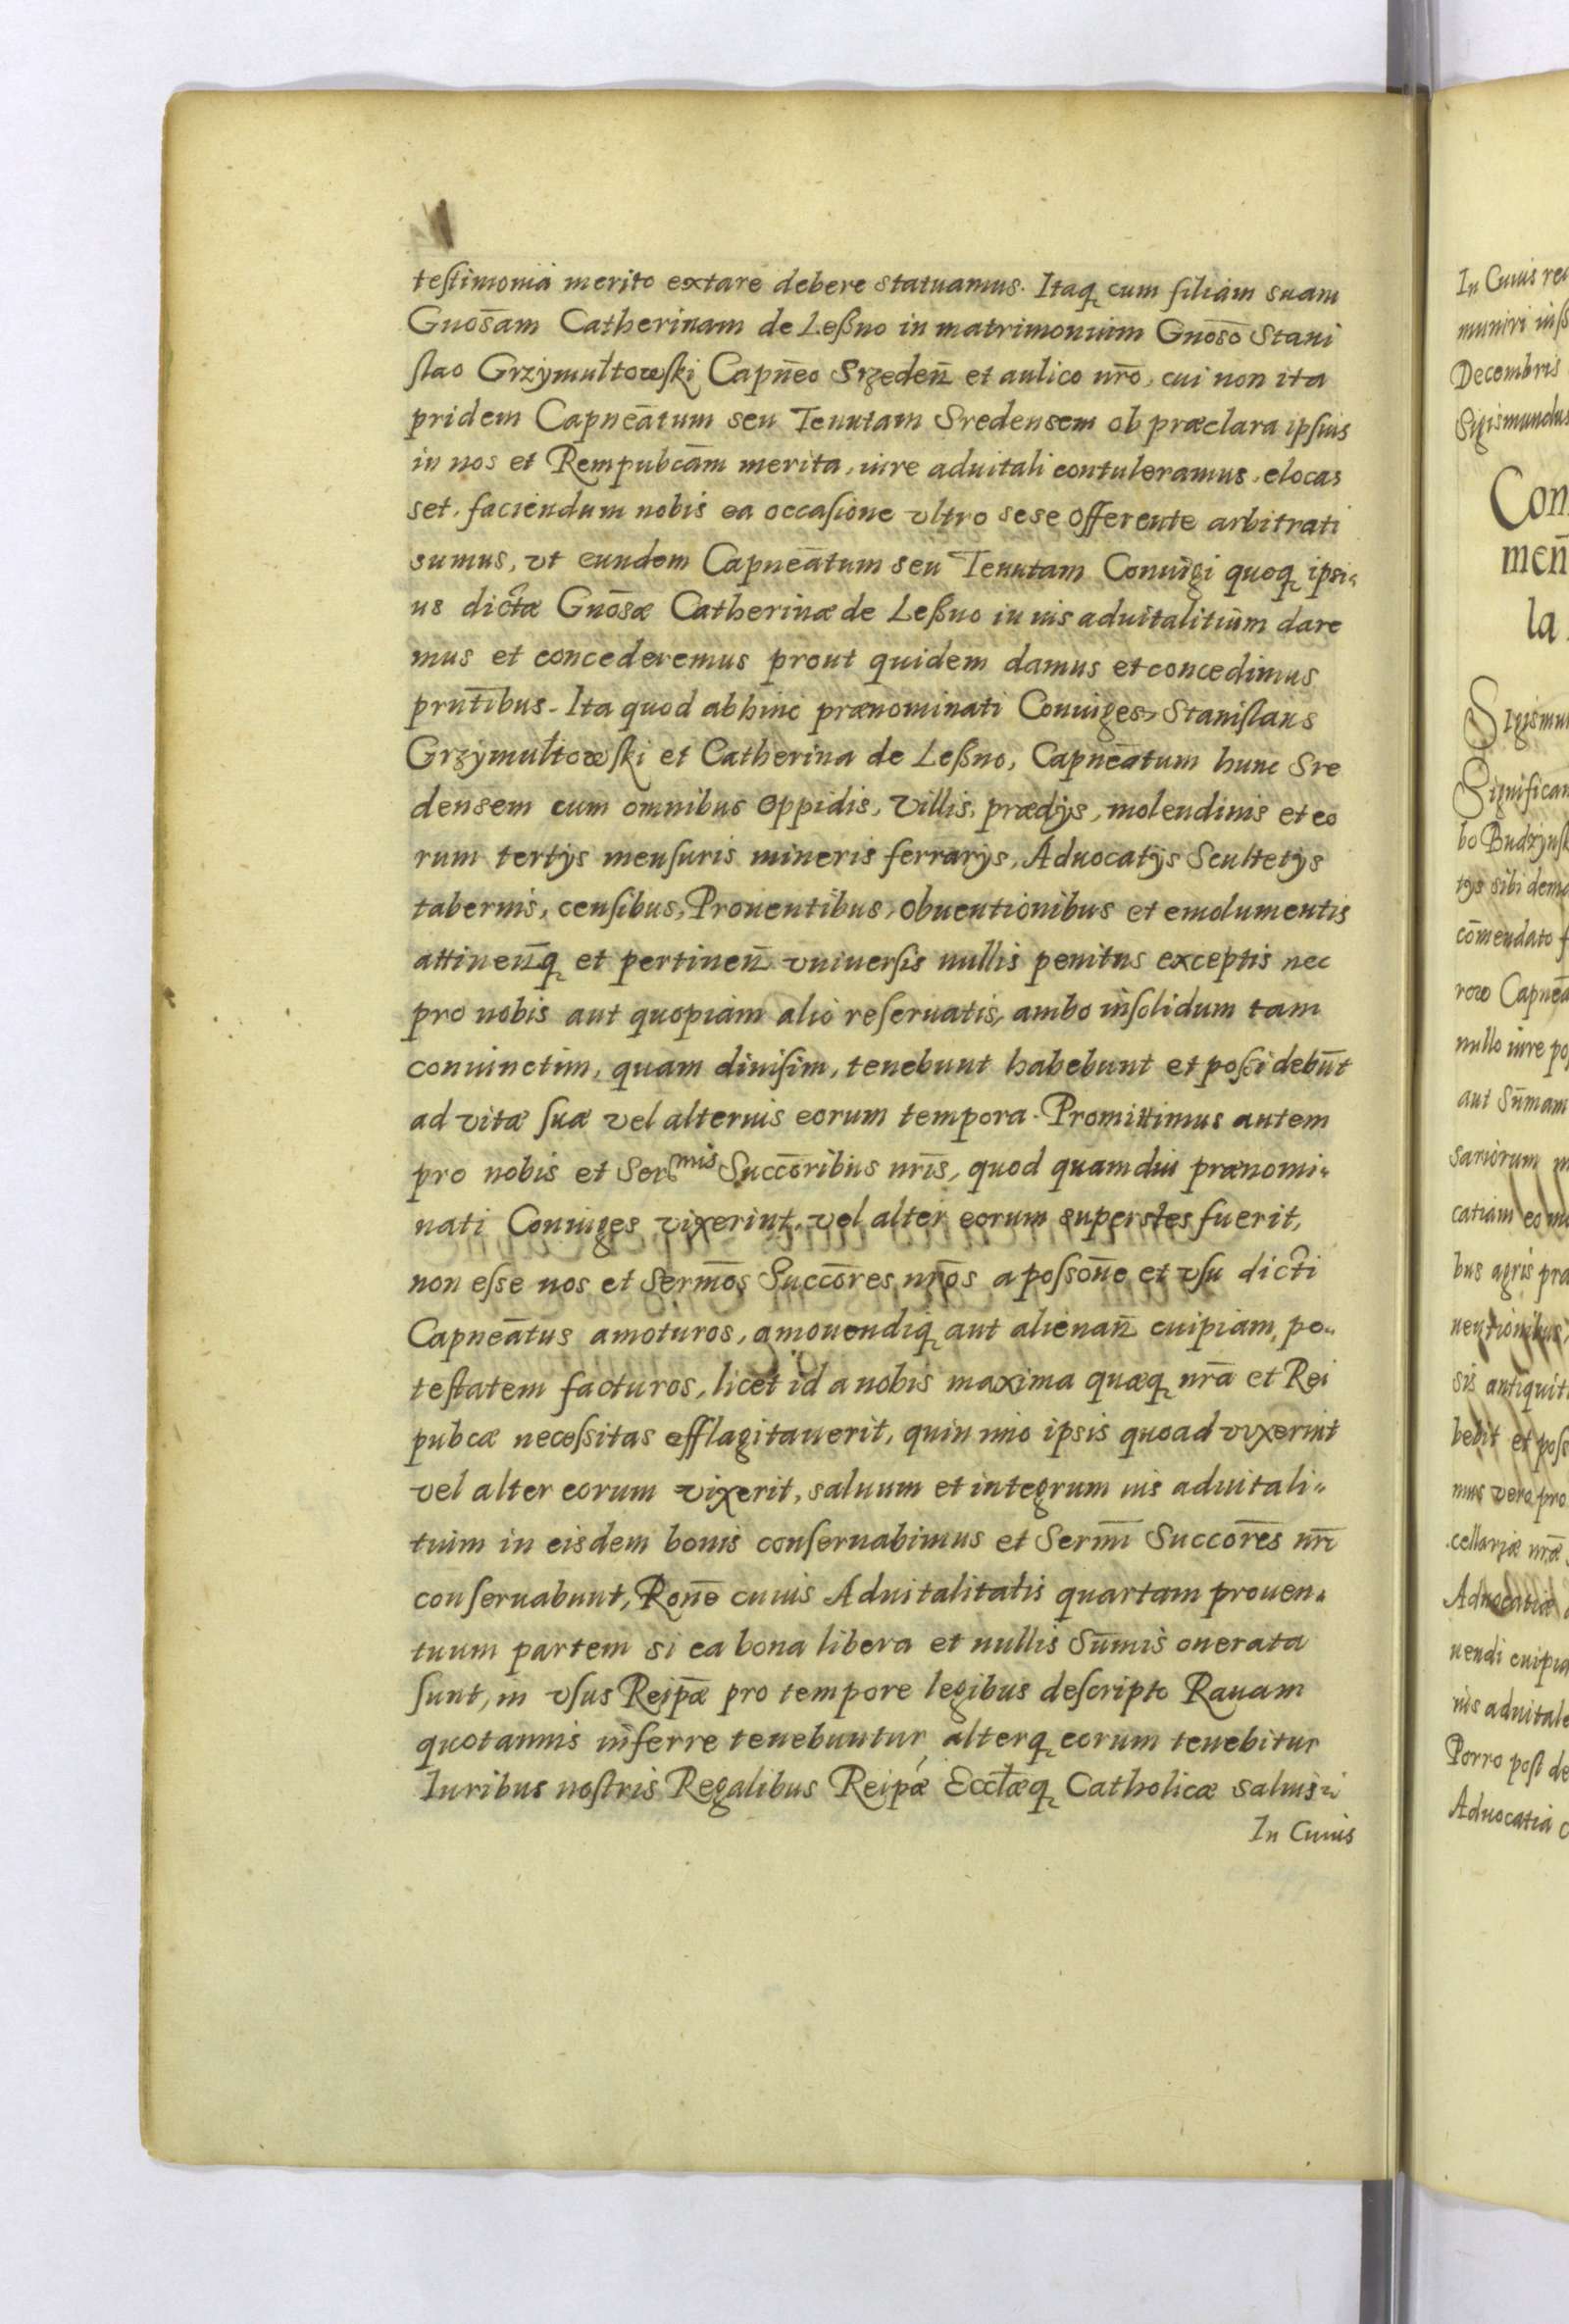 testimonia merito extare debere statuamus. Itaq cum filiam suam
Gnosam Catherinam de Leßno in matrimonium Gnoso Stani
slao Grzymułtowski Capneo Srzeden et aulico nro, cui non ita
pridem Capneatum seu Tenutam Sredensem ob præclara ipsius
in nos et Rempubcam merita, iure aduitali contuleramus, elocas
set, faciendum nobis ea occasione vltro sese offerente arbitrati
sumus, vt eundem Capneatum seu Tenutam Coniugi quoq ipsi-
us dictæ Gnosæ Catherinæ de Leßno in ius aduitalitium dare
mus et concederemus prout quidem damus et concedimus
prntibus. Ita quod abhinc prænominati Coniuges, Stanislaus
Grzymułtowski et Catherina de Leßno, Capneatum hunc Sre
densem cum omnibus oppidis, villis, prædys, molendinis et eo
rum tertys mensuris mineris ferrarys, Aduocatys Scultetys
tabernis, censibus, Prouentibus, obuentionibus et emolumentis
attinenq et pertinen vniuersis nullis penitus exceptis nec
pro nobis aut quopiam alio reseruatis, ambo insolidum tam
coniunctim, quam diuisim, tenebunt habebunt et possidebūt
ad vitæ suæ vel alterius eorum tempora. Promittimus autem
pro nobis et Sermis Succoribus nris, quod quamdiu prænomi-
nati Coniuges vixerint, vel alter eorum superstes fuerit,
non esse nos et Sermos Succores nros a possone et vsu dicti
Capneatus amoturos, amouendiq aut alienan cuipiam, po-
testatem facturos, licet id a nobis maxima quæq nra et Rei
pubcæ necessitas efflagitauerit, quin imo ipsis quoad vixerint
vel alter eorum vixerit, saluum et integrum ius aduitali-
tium in eisdem bonis conseruabimus et Sermi Succores nri
conseruabunt, Rone cuius Aduitalitatis quartam prouen-
tuum partem si ea bona libera et nullis Sūmis onerata
sunt, in vsus Reipæ pro tempore legibus descripto Rauam
quotannis inferre tenebuntur, alterq eorum tenebitur
Iuribus nostris Regalibus Reipæ Ecclæq Catholicæ saluis
In Cuius
In Cuius rei
muniri iuss
Decembris
Sigismundus
Con
men
la
Sigismun
Significam
bo Budzynsk
tys sibi dema
cōmendato f
row Capnea
nullo iure po
aut Sūmam
sariorum m
catiam eo mo
bus agris pra
uentionibus,
sis antiquit
bebit et poss
mus vero pro
cellariæ nræ
Aduocatiæ
uendi cuipia
ius aduitale
Porro post de
Aduocatia c